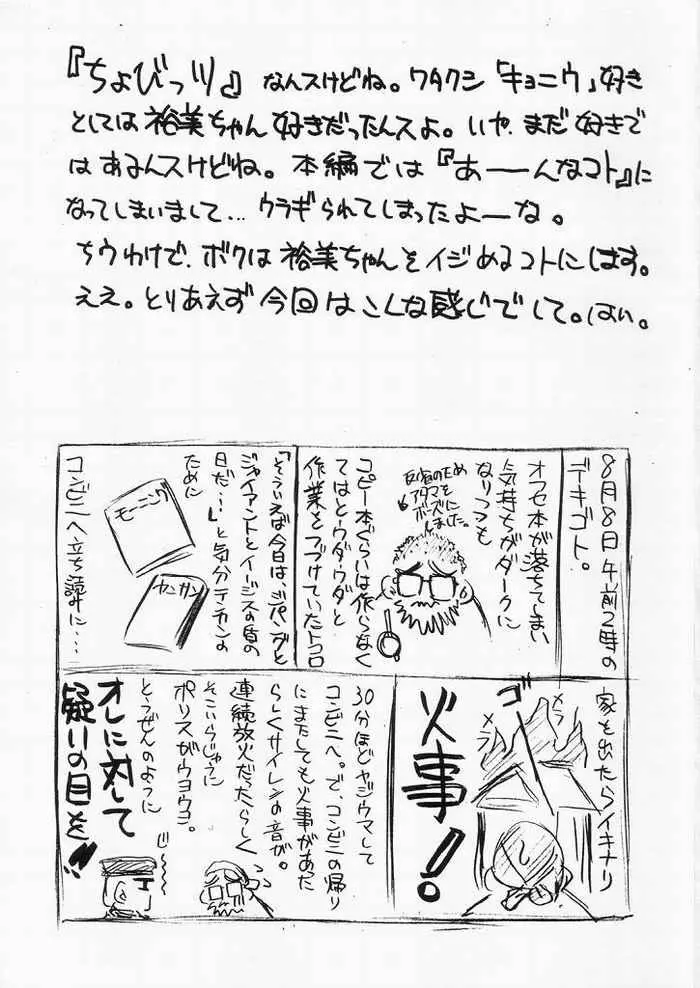 『ちょびっツ』なんスけどね。ワタクシ「キョニウ」好き
としては裕美ちゃん好きだったんスよ。いや、まだ好きで
はあるんスけどね。本編では『あーーんなコト』に
なってしまいまして…ウラギられてしまったよーな。
ちウわけで、ボクは裕美ちゃんをイジめるコトにします。
ええ。とりあえず今回はこんな感じでして。はい。
8月8日午前2時の
デキゴト。
オフセ本が落ちてしまい
気持ちがダークに
なりつつも
反省のため
アタマを
ボーズに
しました。
コピー本ぐらいは作らなく
てはとウダウダと
作業をつづけていたトコロ
「そういえば今日は、ジパングと
ジャイアントとイージスの盾の
日だ…」と気分テンカンの
ために
モーニング
ヤンサン
コンビニへ立ち読みに…
家を出たらイキナリ
メラ
ゴー
メラ
火事!
30分ほどヤジウマして
コンビニへ。で、コンビニの帰り
にまたしても火事があった
らしくサイレンの音が。
連続放火だったらしく
そこいらじゅうに
ポリスがウヨウヨ。
とうぜんのように
オレに対して
疑いの目を!!